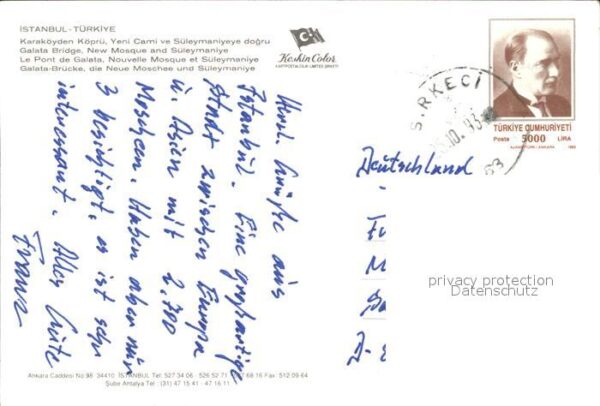 ISTANBUL-TÜRKİYE
Karaköyden Köprü, Yeni Cami ve Süleymaniyeye doğru
Galata Bridge, New Mosque and Süleymaniye
Le Pont de Galata, Nouvelle Mosque et Süleymaniye
Galata-Brücke, die Neue Moschee und Süleymaniye
Keskin Color
KARTPOSTALCILIK LIMITED ŞIRKETI
SIRKECI
10.93
TÜRKİYE CUMHURİYETİ
Posta 5000 LİRA
Deutschland
D-
privacy protection
Datenschutz
Herzl. Grüße aus
Istanbul. Eine großartige
Stadt zwischen Europa
u. Asien mit 2.700
Moscheen. Haben aber nur
3 besichtigt, es ist sehr
interessant. Alles Gute
Franz
Ankara Caddesi No:98 34410 İSTANBUL Tel: 527 34 06 - 526 52 71 - 527 68 16 Fax: 512 09 64
Şube Antalya Tel: (31) 47 15 41 - 47 16 11